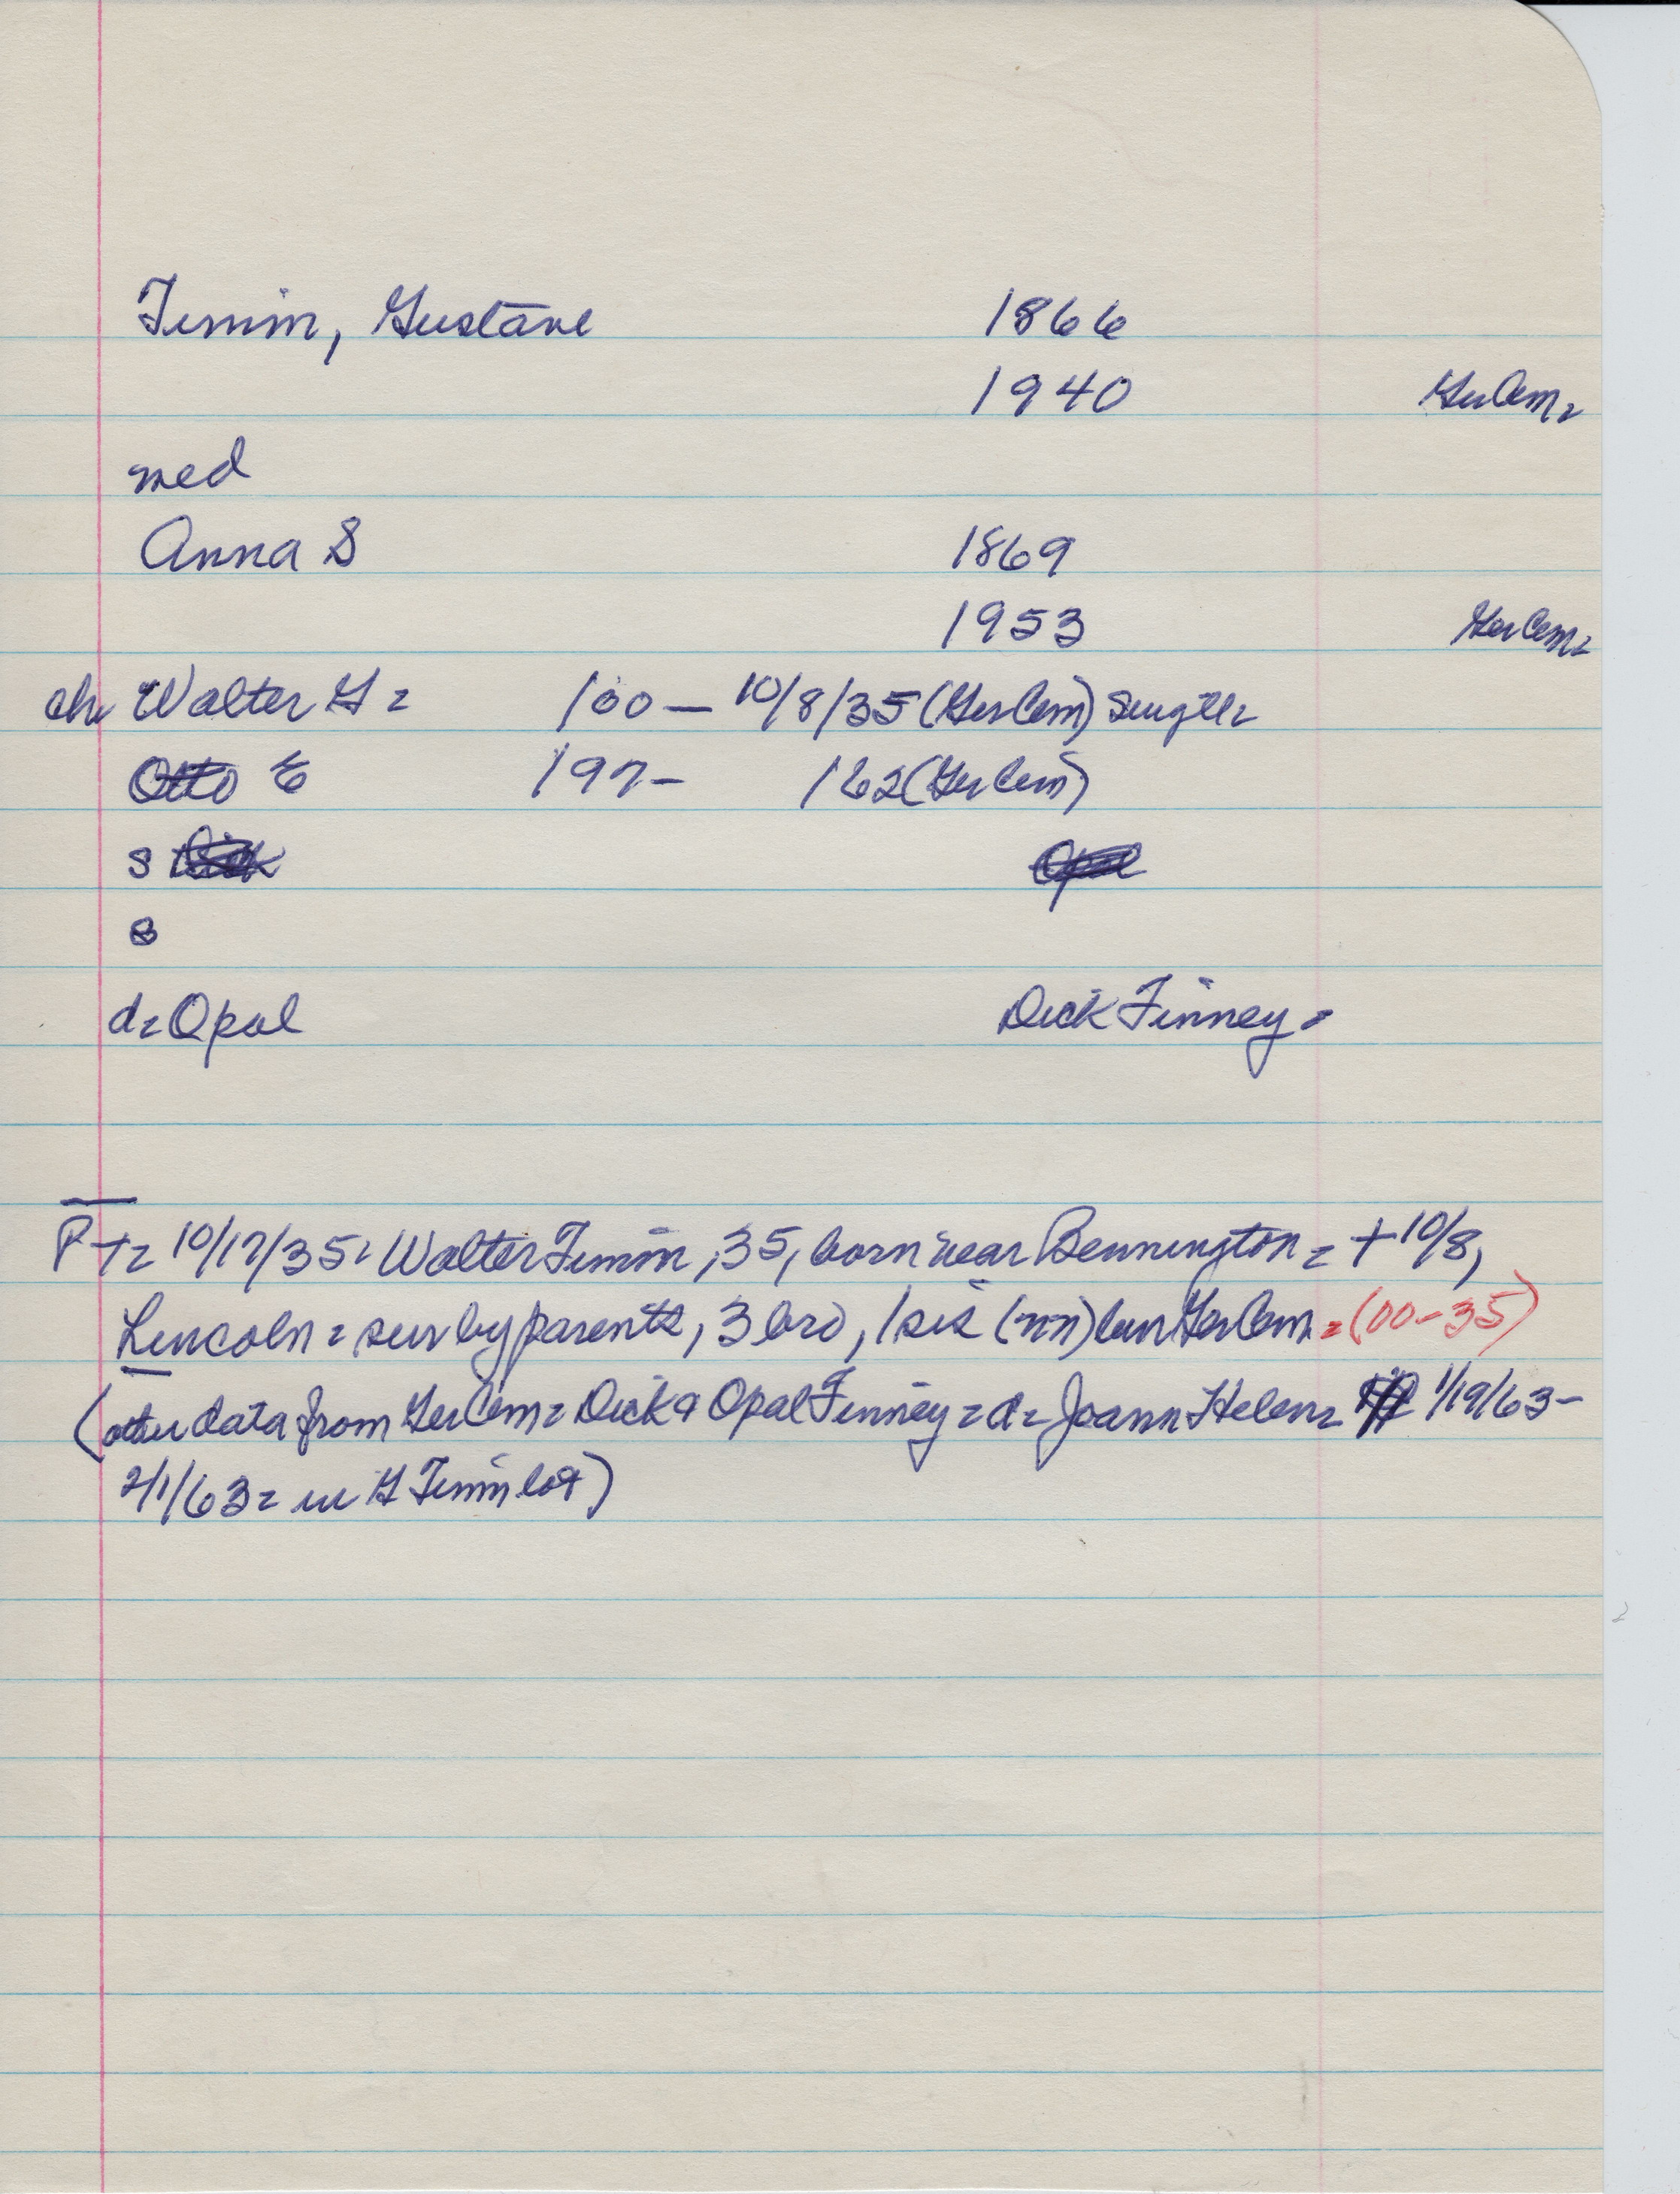 Timm, Gustave 1866
1940 Ger Cem=
med
Anna S 1869
1953 Ger Cem=
ch Walter G = /00 - 10/8/35 (Ger Cem) single=
Otto E /97- /62 (Ger Cem)
s Dick Opal
s
d= Opal Dick Finney=
P+= 10/17/35= Walter Timm, 35, born near Bennington = + 10/8,
Lincoln = sur by parents, 3 bro, 1 sis (nn) bur Ger Cem = (00-35)
(other data from Ger Cem= Dick & Opal Finney = d= Joann Helen= 1/19/63-
2/1/63= in G Timm lot)